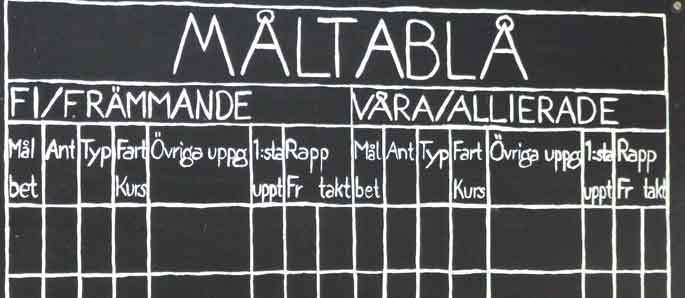 MÅLTABLÅ
FI/FRÄMMANDE VÅRA/ALLIERADE
Mål Ant Typ Fart Övriga uppg 1:sta Rapp Mål Ant Typ Fart Övriga uppg 1:sta Rapp
bet Kurs uppt Fr takt bet Kurs uppt Fr takt